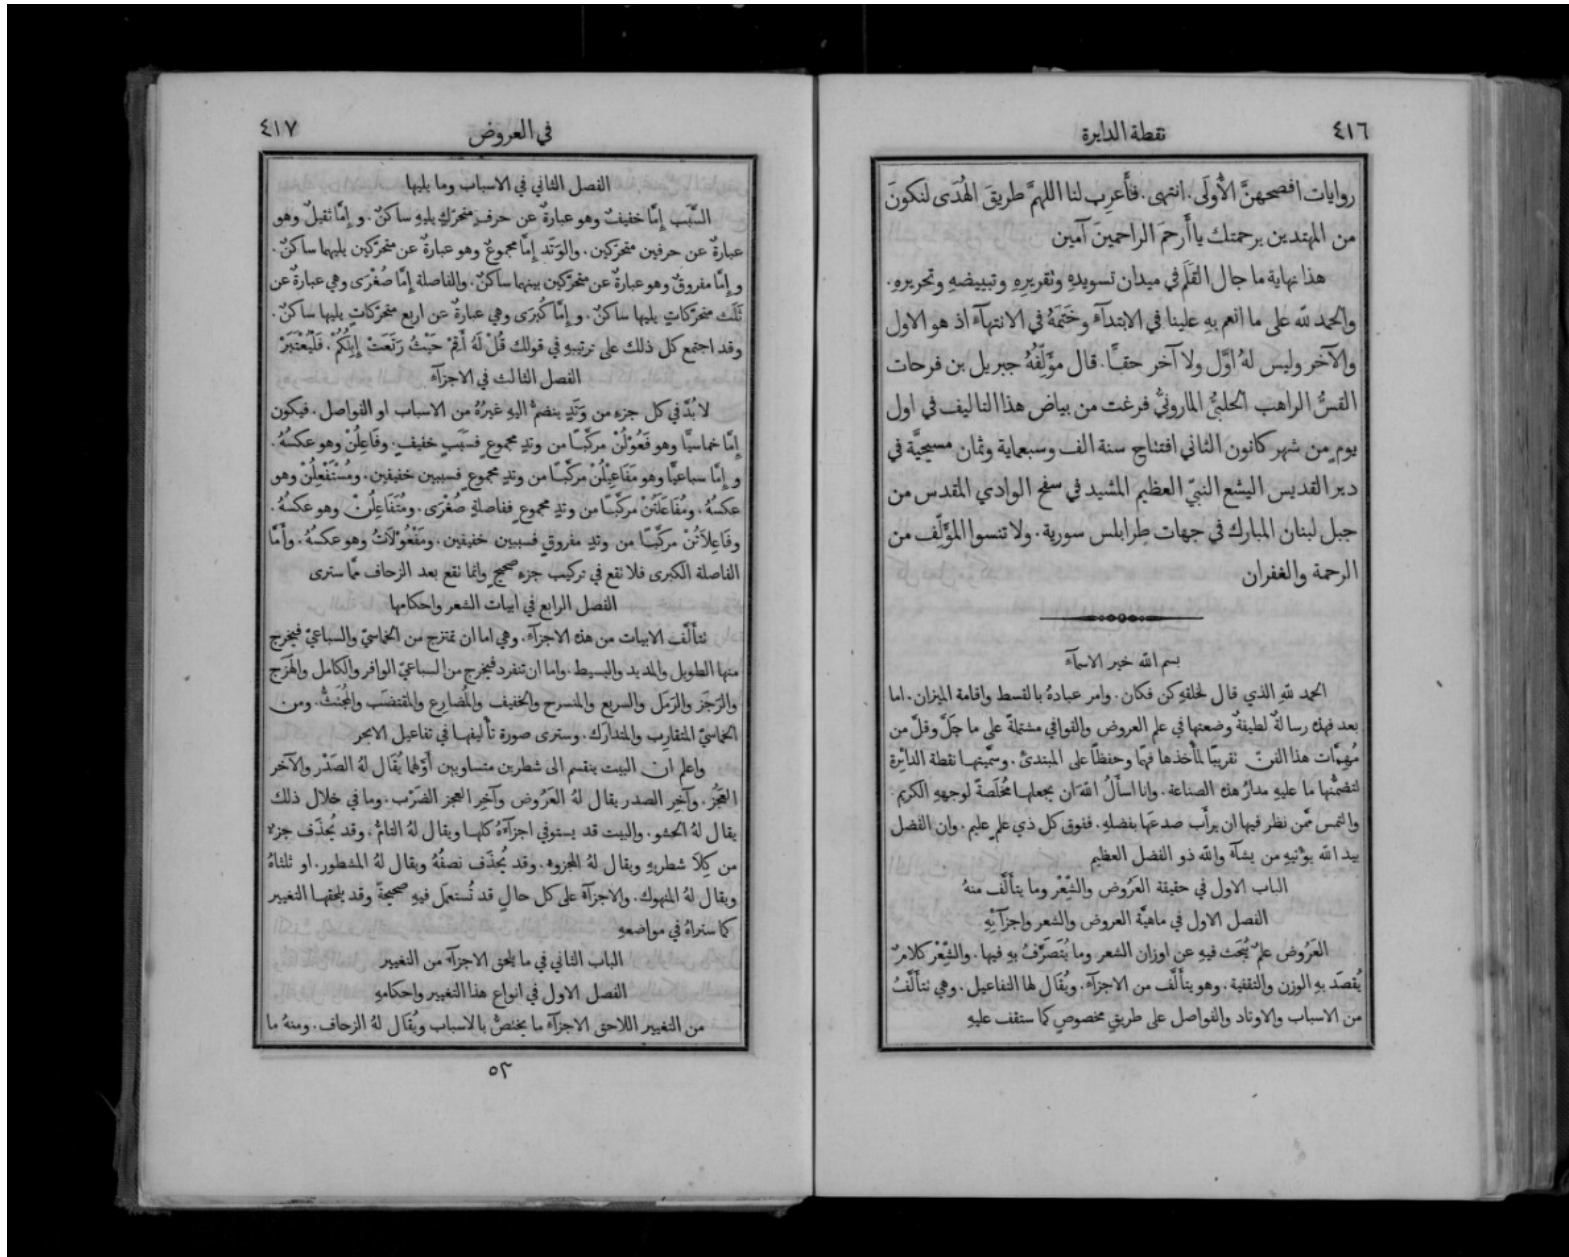 ٤١٦
نقطة الدايرة
روايات افصحهنَّ الأُولَى. انتهى. فأَعرِب لنا اللهمَّ طريقَ الهُدَى لنكونَ
من المهتدين برحمتك يا أَرحمَ الراحمينَ آمين
هذا نهاية ما جال القَلَم في ميدان تسويدهِ وتقريرهِ وتبييضهِ وتحريرهِ.
والحمد لله على ما انعم بهِ علينا في الابتدآءِ وخَتَمَهُ في الانتهآءِ اذ هو الاول
والآخر وليس لهُ اوَّل ولا آخر حقًّا. قال مؤَلِّفُهُ جبريل بن فرحات
القسُّ الراهب الحلبيُّ المارونيُّ فرغت من بياض هذا التاليف في اول
يومٍ من شهر كانون الثاني افتتاح سنة الف وسبعماية وثمان مسيحيَّة في
دير القديس اليشع النبيّ العظيم المشيد في سفح الوادي المقدس من
جبل لبنان المبارك في جهات طرابلس سورية. ولا تنسوا المؤَلِّف من
الرحمة والغفران
بسم الله خير الاسمآء
الحمد للهِ الذي قال لخلقهِ كن فكان. وامر عبادهُ بالقسط واقامة الميزان. اما
بعد فهذه رسالةٌ لطيفةٌ وضعتها في علم العروض والقوافي مشتملةٌ على ما جَلَّ وقلَّ من
مُهِمَّات هذا الفنّ تقريبًا لمأْخذها فهمًا وحفظًا على المبتدئ. وسمَّيتها نقطة الدائِرة
لتضمُّنها ما عليهِ مدارُ هذه الصناعة. وانا اسأَلُ اللهَ ان يجعلها مُخلَصةً لوجههِ الكريم.
والتمس ممَّن نظر فيها ان يرأَب صدعها بفضلهِ. ففوق كل ذي علمٍ عليم. وان الفضل
بيد الله يؤتيهِ من يشآء والله ذو الفضل العظيم
الباب الاول في حقيقة العَرُوض والشِّعْر وما يتأَلَّف منهُ
الفصل الاول في ماهيَّة العروض والشعر واجزآئِهِ
العَرُوض علمٌ يُبحَث فيهِ عن اوزان الشعر وما يُتَصرَّفُ بهِ فيها. والشِّعْر كلامٌ
يُقصَد بهِ الوزن والتقفية. وهو يتأَلَّف من الاجزآءِ. ويُقَال لها التفاعيل. وهي تتأَلَّفُ
من الاسباب والاوتاد والفواصل على طريقٍ مخصوصٍ كما ستقف عليهِ
في العروض
٤١٧
الفصل الثاني في الاسباب وما يليها
السَّبَب إِمَّا خفيفٌ وهو عبارةٌ عن حرفٍ متحرّكٍ يليهِ ساكنٌ. وإِمَّا ثقيلٌ وهو
عبارةٌ عن حرفين متحرّكين. والوَتَد إِمَّا مجموعٌ وهو عبارةٌ عن متحرّكين يليهما ساكنٌ.
وإِمَّا مفروقٌ وهو عبارةٌ عن متحرّكين بينهما ساكنٌ. والفاصلة إِمَّا صُغْرَى وهي عبارةٌ عن
ثَلَث متحرّكاتٍ يليها ساكنٌ. وإِمَّا كُبرَى وهي عبارةٌ عن اربع متحرّكاتٍ يليها ساكنٌ.
وقد اجتمع كل ذلك على ترتيبهِ في قولك قُلْ لَهُ أَقِمْ حَيْثُ رَتَعَتْ إِبِلُكُمْ. فَلْيُعْتَبَرْ
الفصل الثالث في الاجزآءِ
لا بُدَّ في كل جزءٍ من وَتَدٍ ينضمُّ اليهِ غيرُهُ من الاسباب او الفواصل. فيكون
إِمَّا خماسيًّا وهو فَعُوْلُنْ مركَّبًا من وتدٍ مجموعٍ فسَبَبٍ خفيفٍ. وفَاعِلُنْ وهو عكسُهُ.
وإِمَّا سباعيًّا وهو مَفَاعِيْلُنْ مركَّبًا من وتدٍ مجموعٍ فسببين خفيفين. ومُسْتَفْعِلُنْ وهو
عكسُهُ. ومُفَاعَلَتُنْ مركَّبًا من وتدٍ مجموعٍ ففاصلةٍ صُغْرَى. ومُتَفَاعِلُنْ وهو عكسُهُ.
وفَاعِلاَتُنْ مركَّبًا من وتدٍ مفروقٍ فسببين خفيفين. ومَفْعُوْلاَتُ وهو عكسُهُ. وأَمَّا
الفاصلة الكبرى فلا تقع في تركيب جزءٍ صحيحٍ وانما تقع بعد الزحاف ممَّا سترى
الفصل الرابع في ابيات الشعر واحكامها
تتأَلَّف الابيات من هذه الاجزآءِ. وهي اما ان تمتزج من الخماسيّ والسباعيّ فيخرج
منها الطويل والمديد والبسيط. واما ان تنفرد فيخرج من السباعيّ الوافر والكامل والهَزَج
والرَجَز والرَمَل والسريع والمنسرح والخفيف والمُضارِع والمقتضَب والمُجتَثّ. ومن
الخماسيّ المتقارِب والمتدارَك. وسترى صورة تأليفها في تفاعيل الابحر
واعلم ان البيت ينقسم الى شطرين متساويين أَوَّلهما يُقَال لهُ الصَدْر والآخر
العَجُزُ. وآخِر الصدر يقال لهُ العَرُوض وآخِر العجز الضَرْب. وما في خلال ذلك
يقال لهُ الحشو. والبيت قد يستوفي اجزآءَهُ كلها ويقال لهُ التامُّ. وقد يُحذَف جزءٌ
من كِلاَ شطريهِ ويقال لهُ المجزوء. وقد يُحذَف نصفُهُ ويقال لهُ المشطور. او ثلثاهُ
ويقال لهُ المنهوك. والاجزآءُ على كل حالٍ قد تُستعمَل فيهِ صحيحةً وقد يلحقها التغيير
كما ستراهُ في مواضعهِ
الباب الثاني في ما يلحق الاجزآءَ من التغيير
الفصل الاول في انواع هذا التغيير واحكامهِ
من التغيير اللاحق الاجزآءَ ما يختصُّ بالاسباب ويُقَال لهُ الزحاف. ومنهُ ما
٥٣